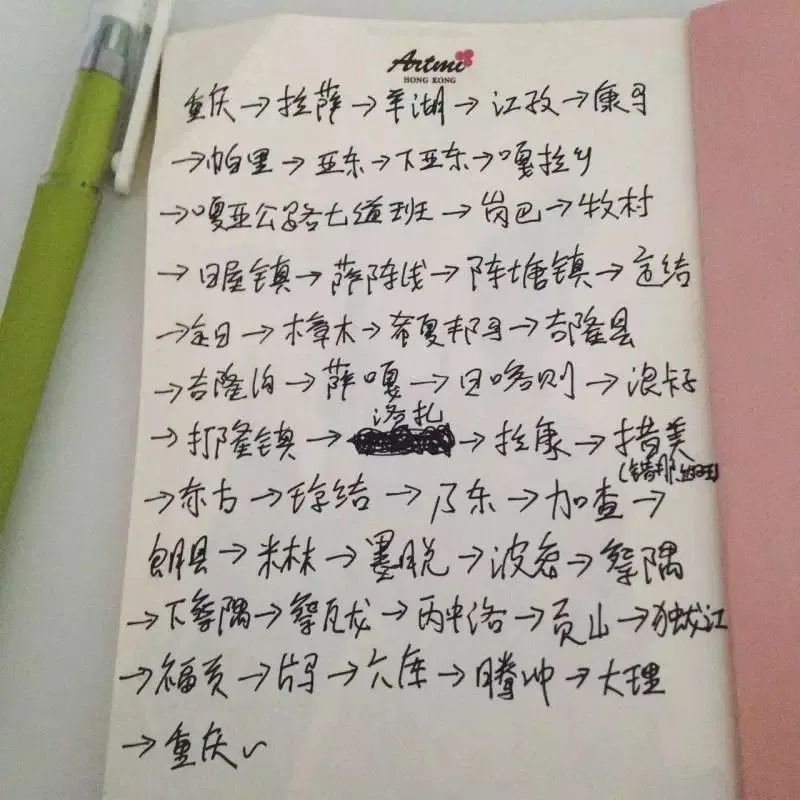 Artmi
HONG KONG
重庆→拉萨→羊湖→江孜→康马
→帕里→亚东→下亚东→嘎拉乡
→嘎亚公路七道班→岗巴→牧村
→日屋镇→萨陈线→陈塘镇→定结
→定日→樟木→希夏邦马→吉隆县
→吉隆沟→萨嘎→日喀则→浪卡子
→打隆镇→洛扎→拉康→措美
(错那
→东古→琼结→乃东→加查→
朗县→米林→墨脱→波密→察隅
→下察隅→察瓦龙→丙中洛→贡山→独龙江
→福贡→片马→六库→腾冲→大理
→重庆